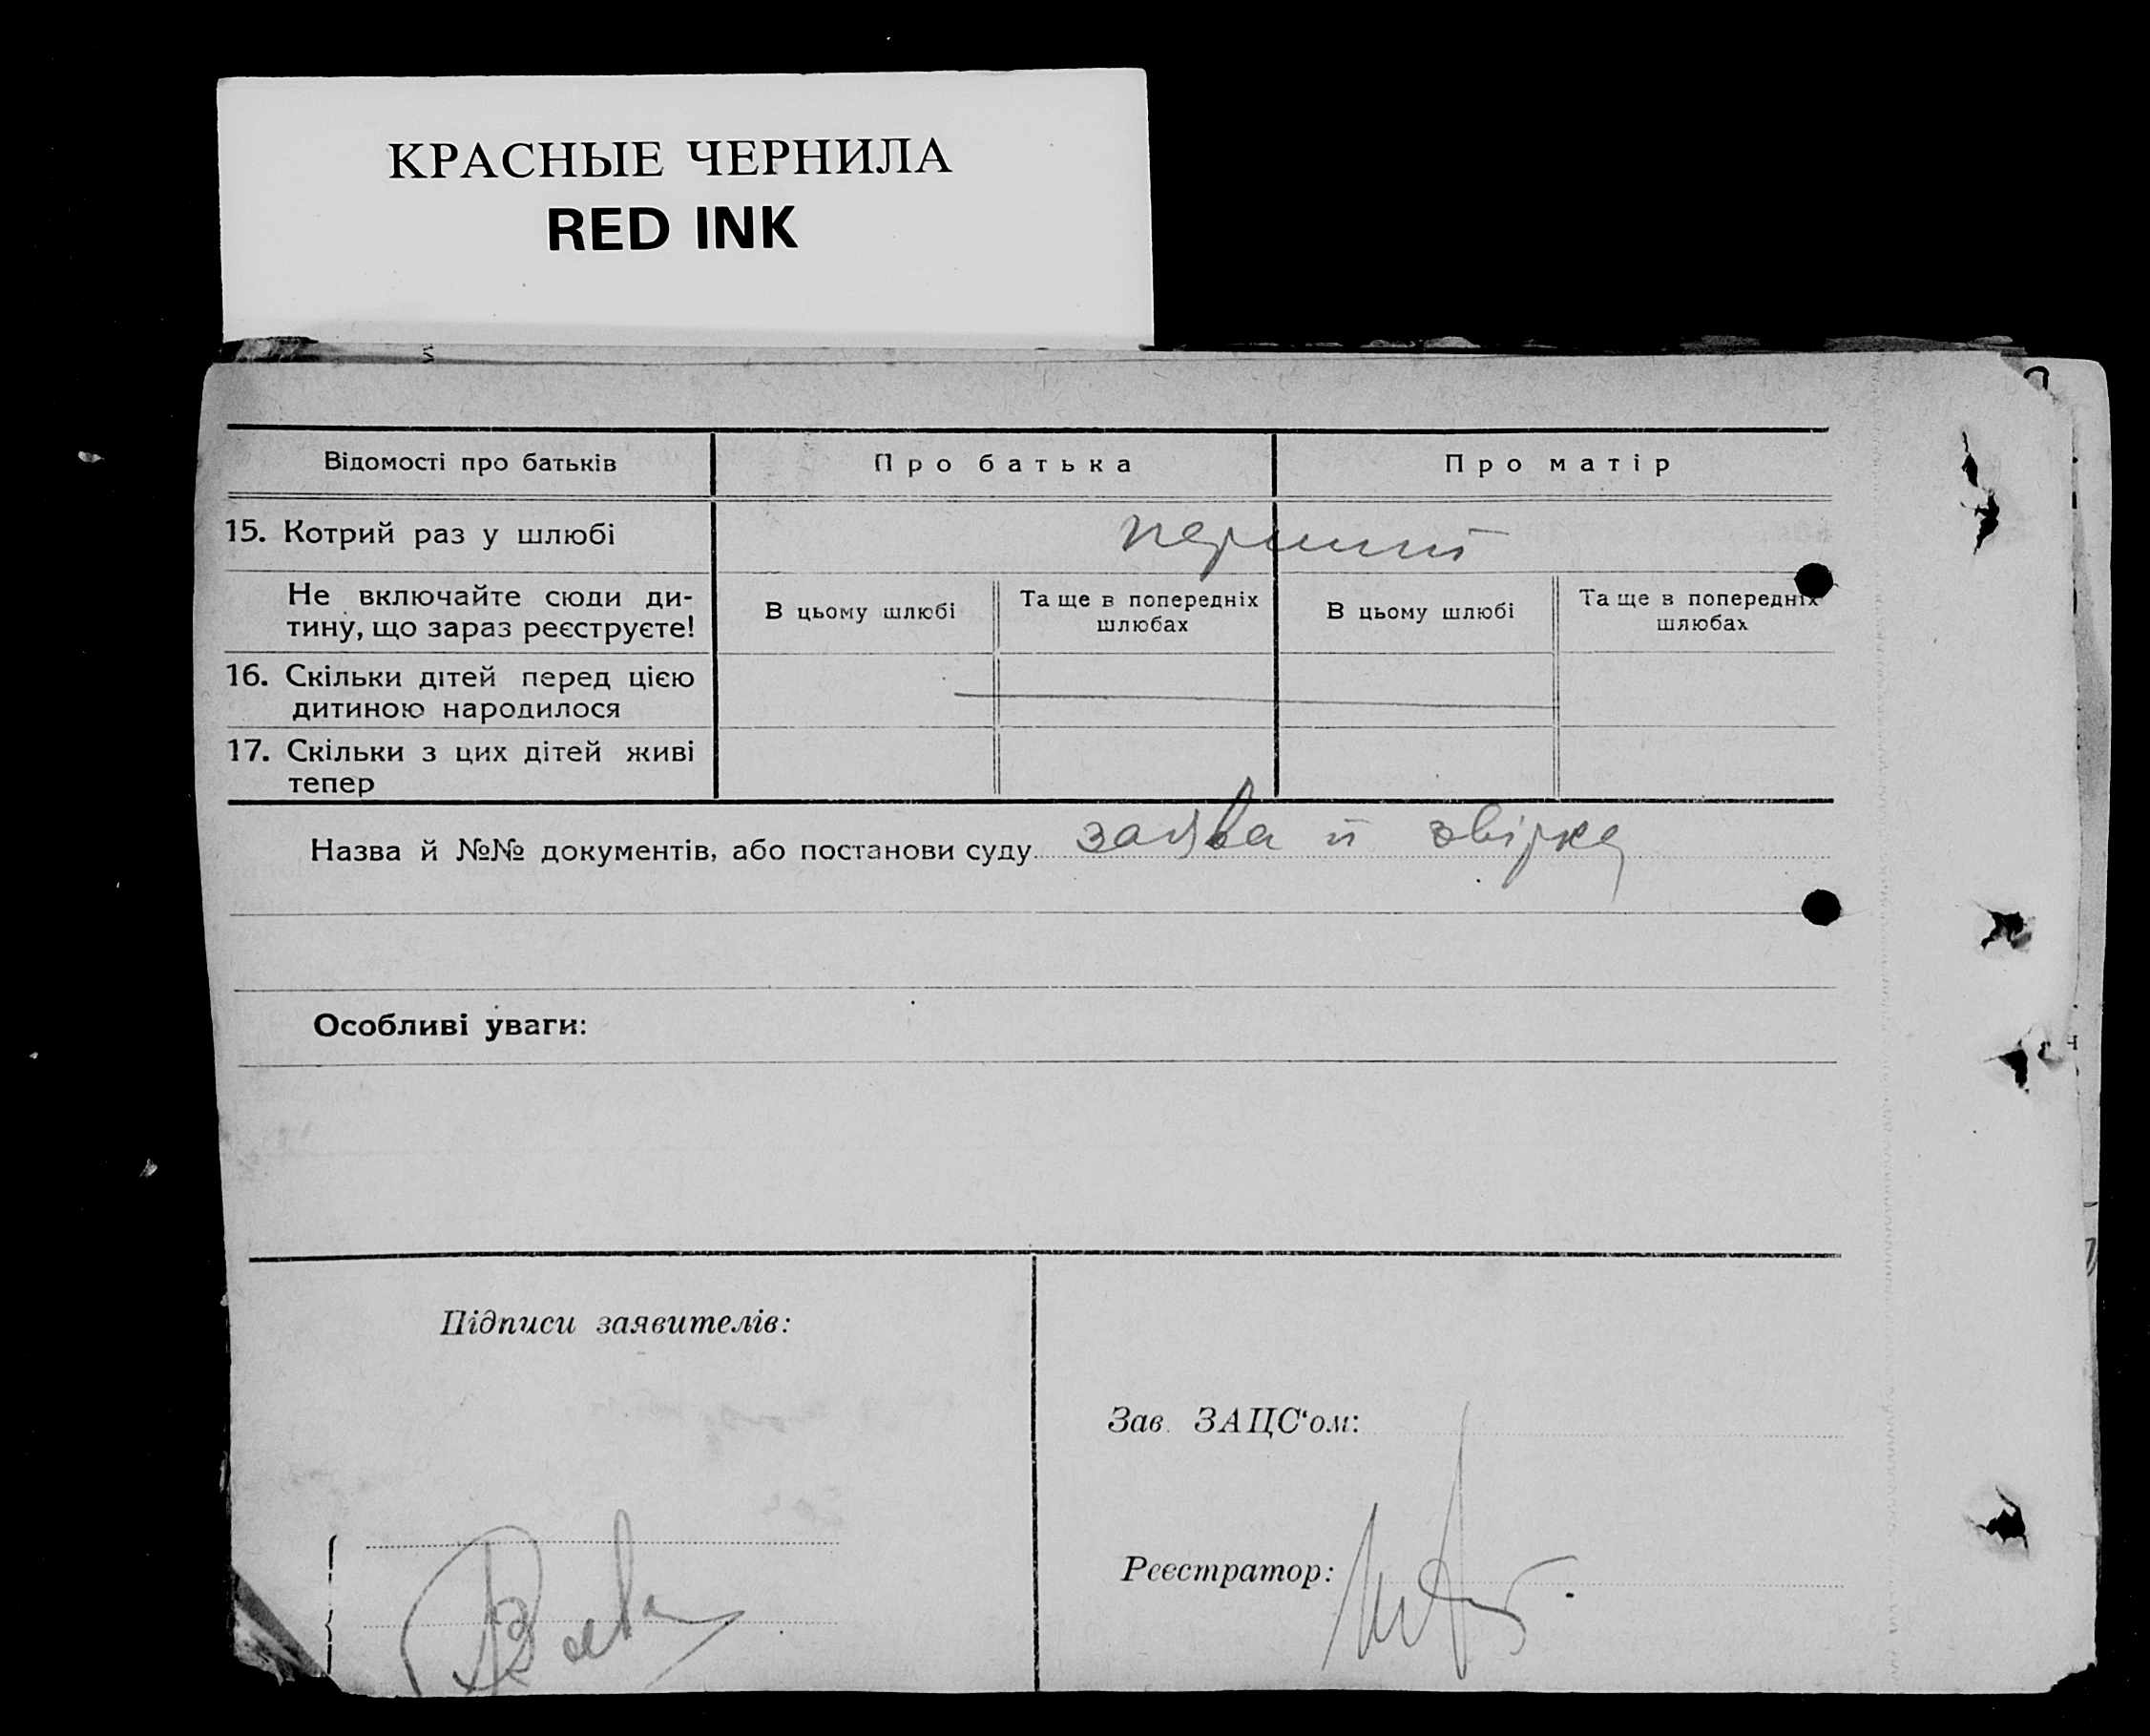 КРАСНЫЕ ЧЕРНИЛА
RED INK
Відомості про батьків
Про батька
Про матір
15. Котрий раз у шлюбі
перший
Не включайте сюди ди-
тину, що зараз реєструєте!
В цьому шлюбі
Та ще в попередніх
шлюбах
В цьому шлюбі
Та ще в попередніх
шлюбах
16. Скільки дітей перед цією
дитиною народилося
17. Скільки з цих дітей живі
тепер
Назва й №№ документів, або постанови суду заява й звірка
Особливі уваги:
Підписи заявителів:
Зав. ЗАЦС‘ом:
Реєстратор: